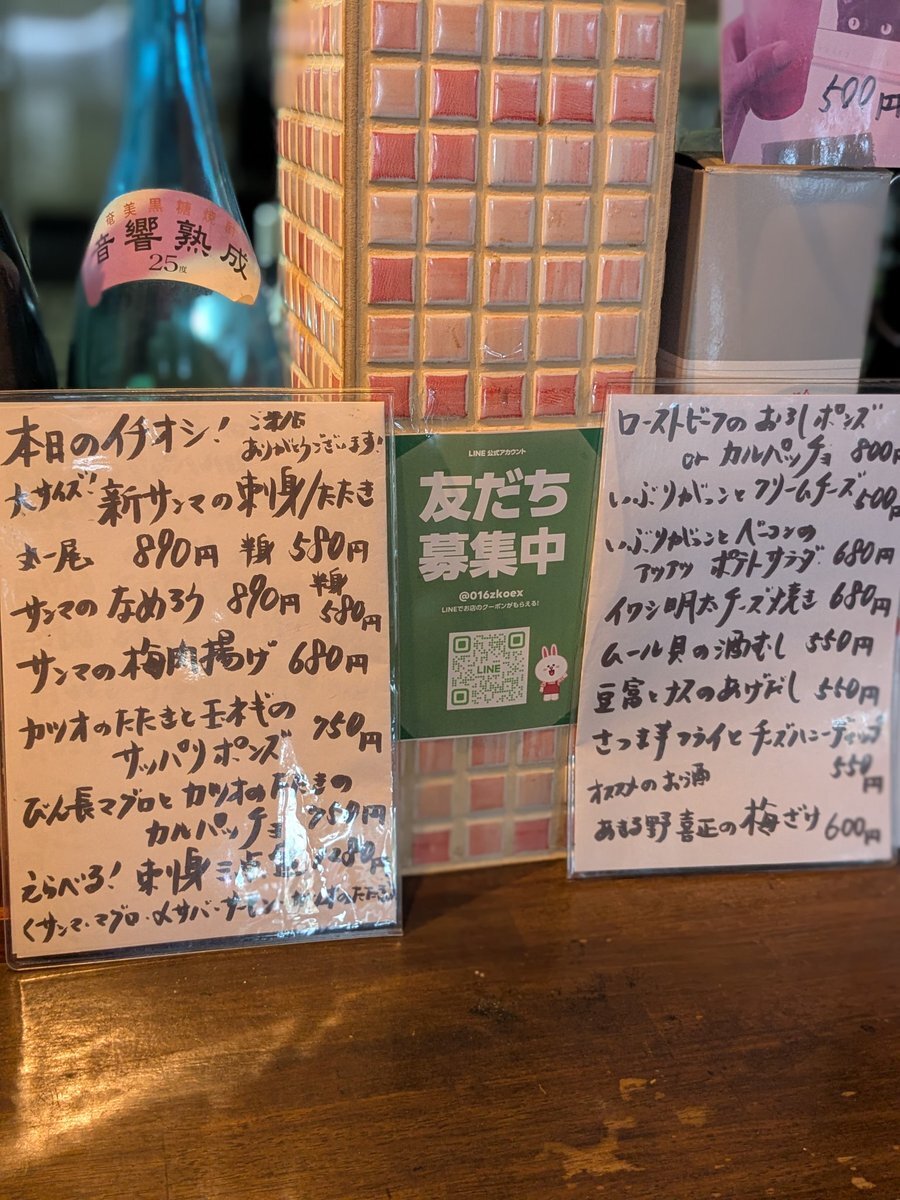 奄美黒糖焼
音響熟成
25度
500円
本日のイチオシ! ご来店
ありがとうございます!
大サイズ! 新サンマの刺身/たたき
丸一尾 890円 半身 580円
サンマのなめろう 890円 半身 580円
サンマの梅肉揚げ 680円
カツオのたたきと玉ネギの
サッパリポンズ 750円
びん長マグロとカツオのたたきの
カルパッチョ 750円
えらべる! 刺身三点盛り 1280円
くサンマ・マグロ・〆サバ・サーモン・カツオのたたき
LINE 公式アカウント
友だち
募集中
@016zkoex
LINEでお店のクーポンがもらえる!
LINE
ローストビーフのおろしポンズ
or カルパッチョ 800円
いぶりがっことクリームチーズ 500円
いぶりがっことベーコンの
アツアツ ポテトサラダ 680円
イワシ明太チーズ焼き 680円
ムール貝の酒むし 550円
豆富とナスのあげだし 550円
さつま芋フライとチーズハニーディップ
550円
オススメのお酒
あまる野喜正の梅ざけ 600円